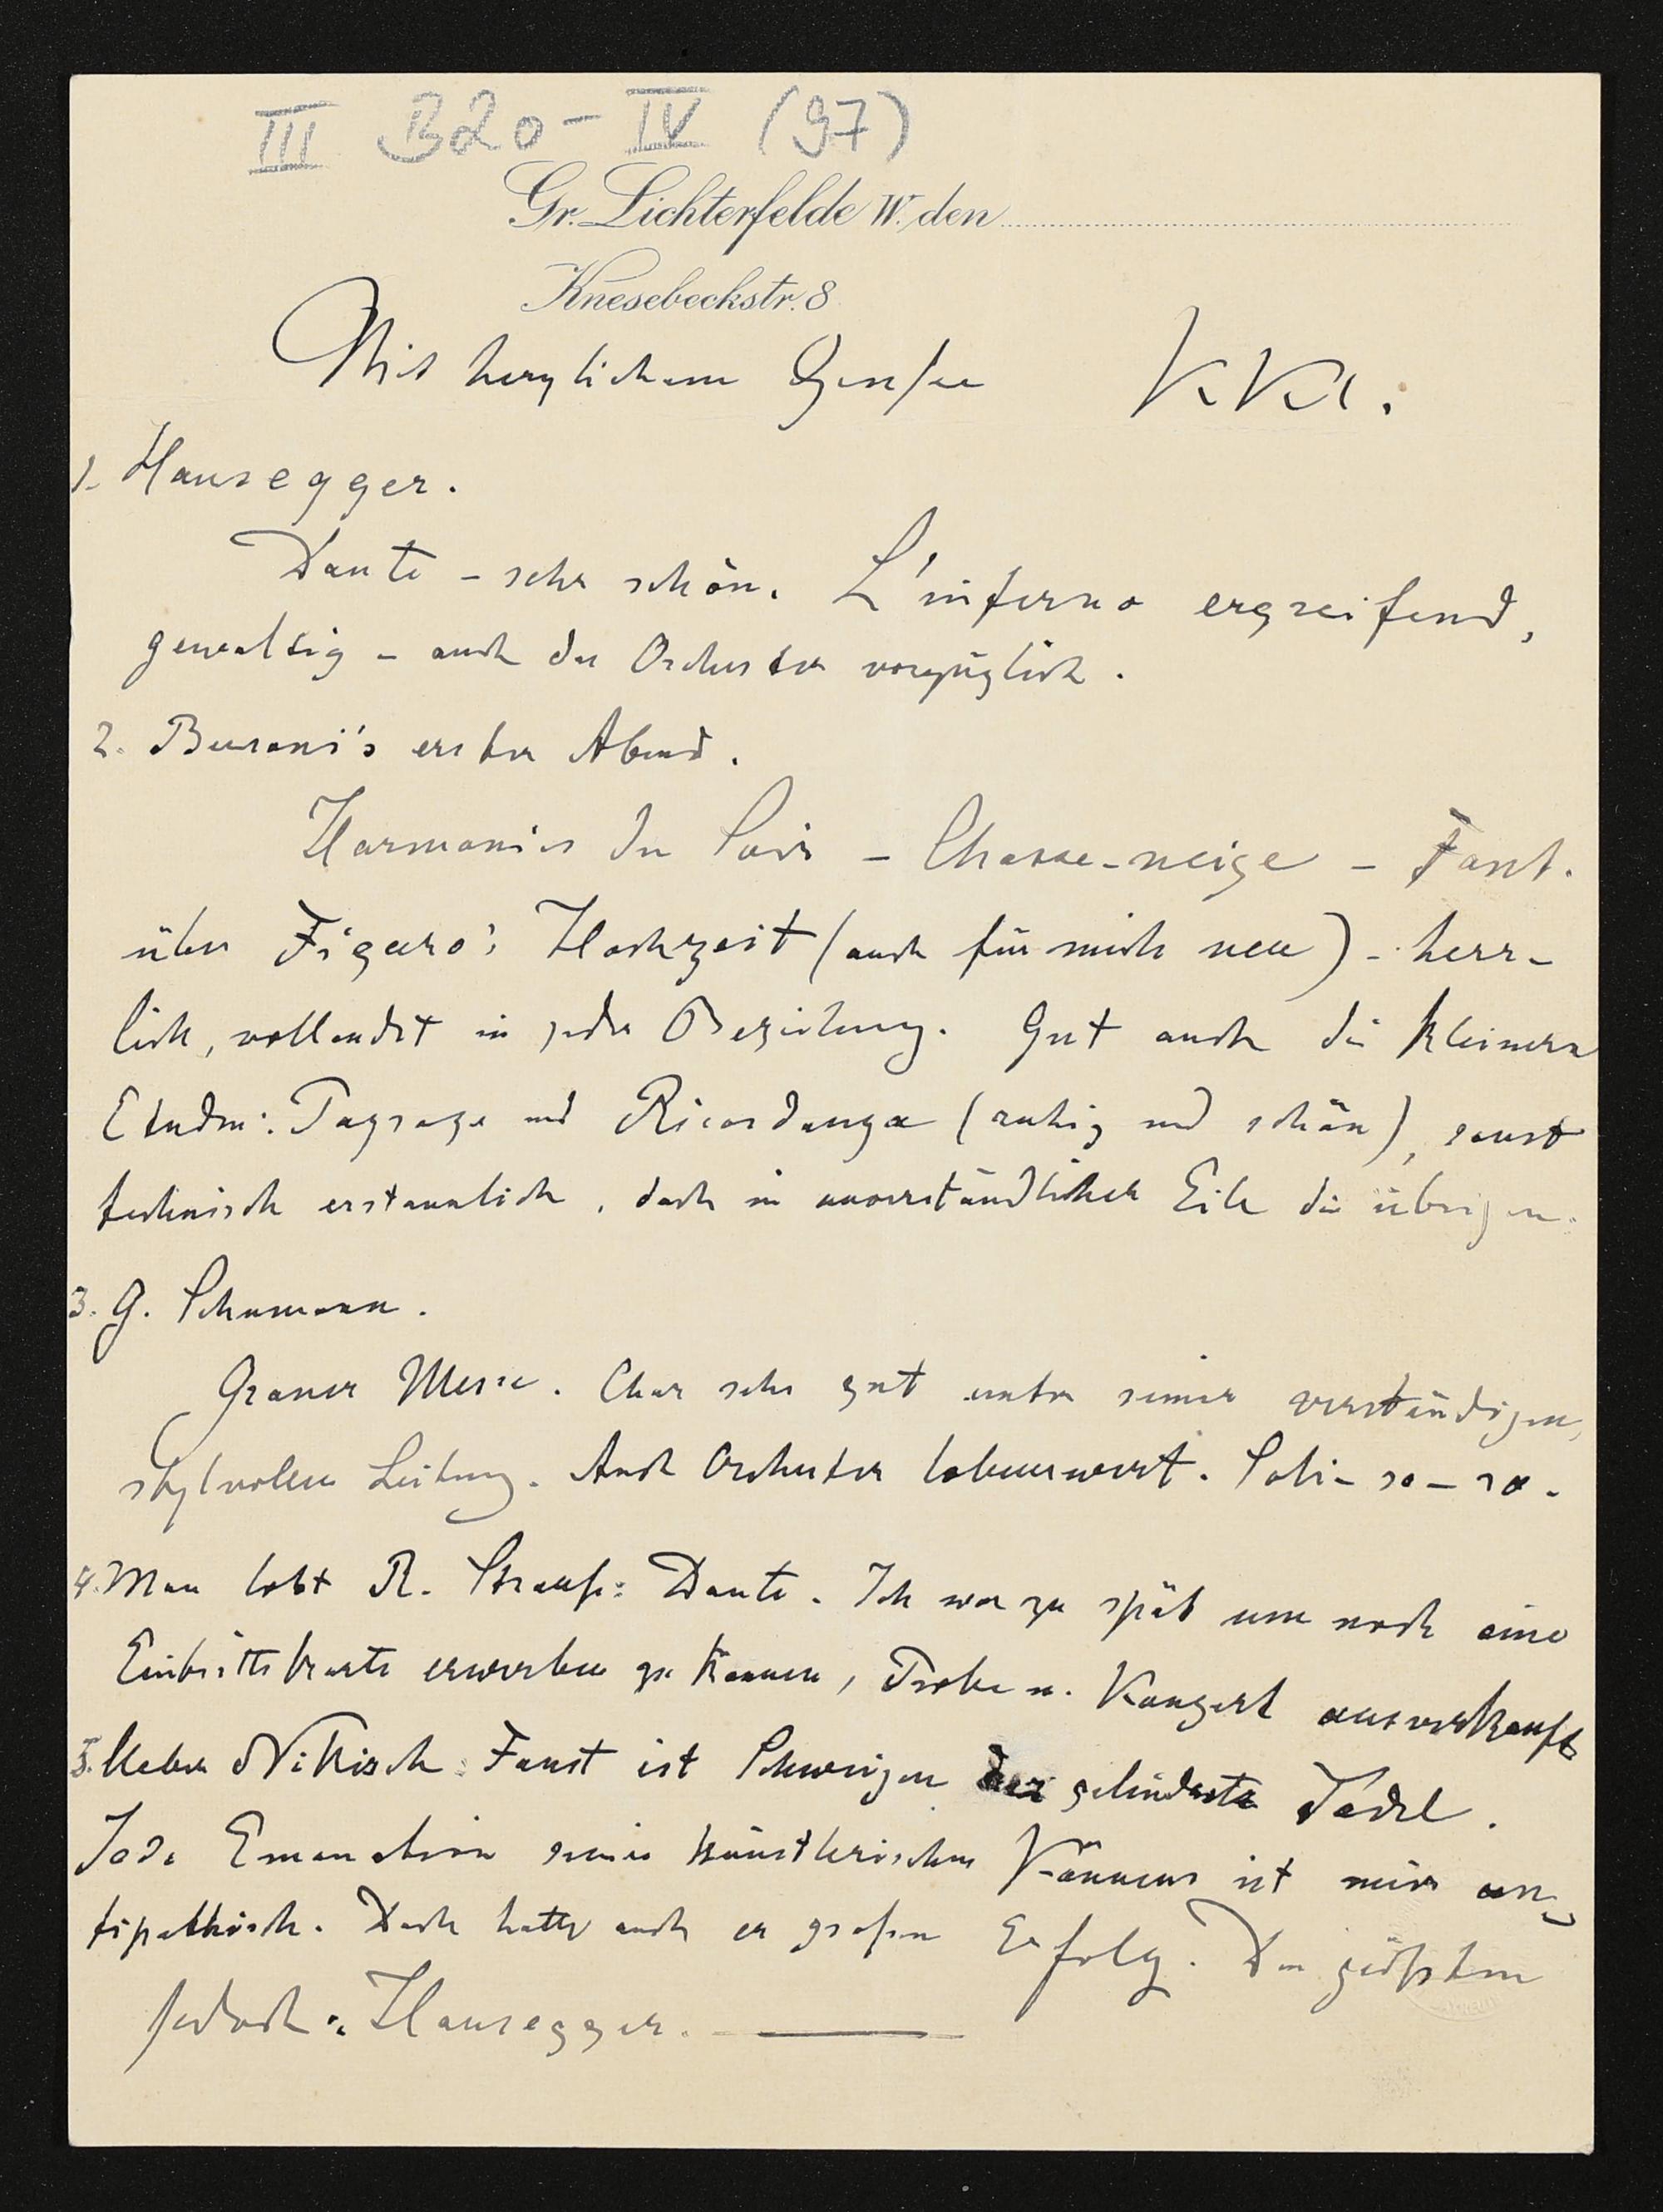 III B20-IV (97)
Gr. Lichterfelde W. den
Knesebeckstr. 8
Mit herzlichem Grusse KKl.
1. Hausegger.
Dante - sehr schön. L'inferno ergreifend,
gewaltig - auch das Orchester vorzüglich.
2. Busoni's erster Abend.
Harmonies du Soir - Chasse-neige - Fant.
über Figaro's Hochzeit (auch für mich neu) - herr-
lich, vollendet in jeder Beziehung. Gut auch die kleinern
Etuden: Paysage und Ricordanza (ruhig und schön), sonst
technisch erstaunlich, doch in unverständlicher Eile die übrigen.
3. G. Schumann.
Graner Messe. Chor sehr gut unter seiner verständigen,
stylvollen Leitung. Auch Orchester lobenswert. Soli - so - so.
4. Man lobt R. Strauß: Dante. Ich war zu spät um noch eine
Eintrittskarte erwerben zu können, Probe u. Konzert ausverkauft
5. Ueber Nikisch: Faust ist Schweigen der gelindeste Tadel.
Jede Emanation seines künstlerischen Könnens ist mir an-
tipathisch. Doch hatte auch er großen Erfolg. Den größten
jedoch: Hausegger. —